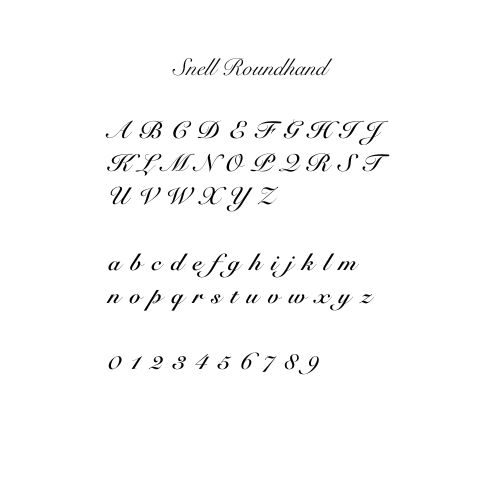 Snell Roundhand
A B C D E F G H I J
K L M N O P Q R S T
U V W X Y Z
a b c d e f g h i j k l m
n o p q r s t u v w x y z
0 1 2 3 4 5 6 7 8 9